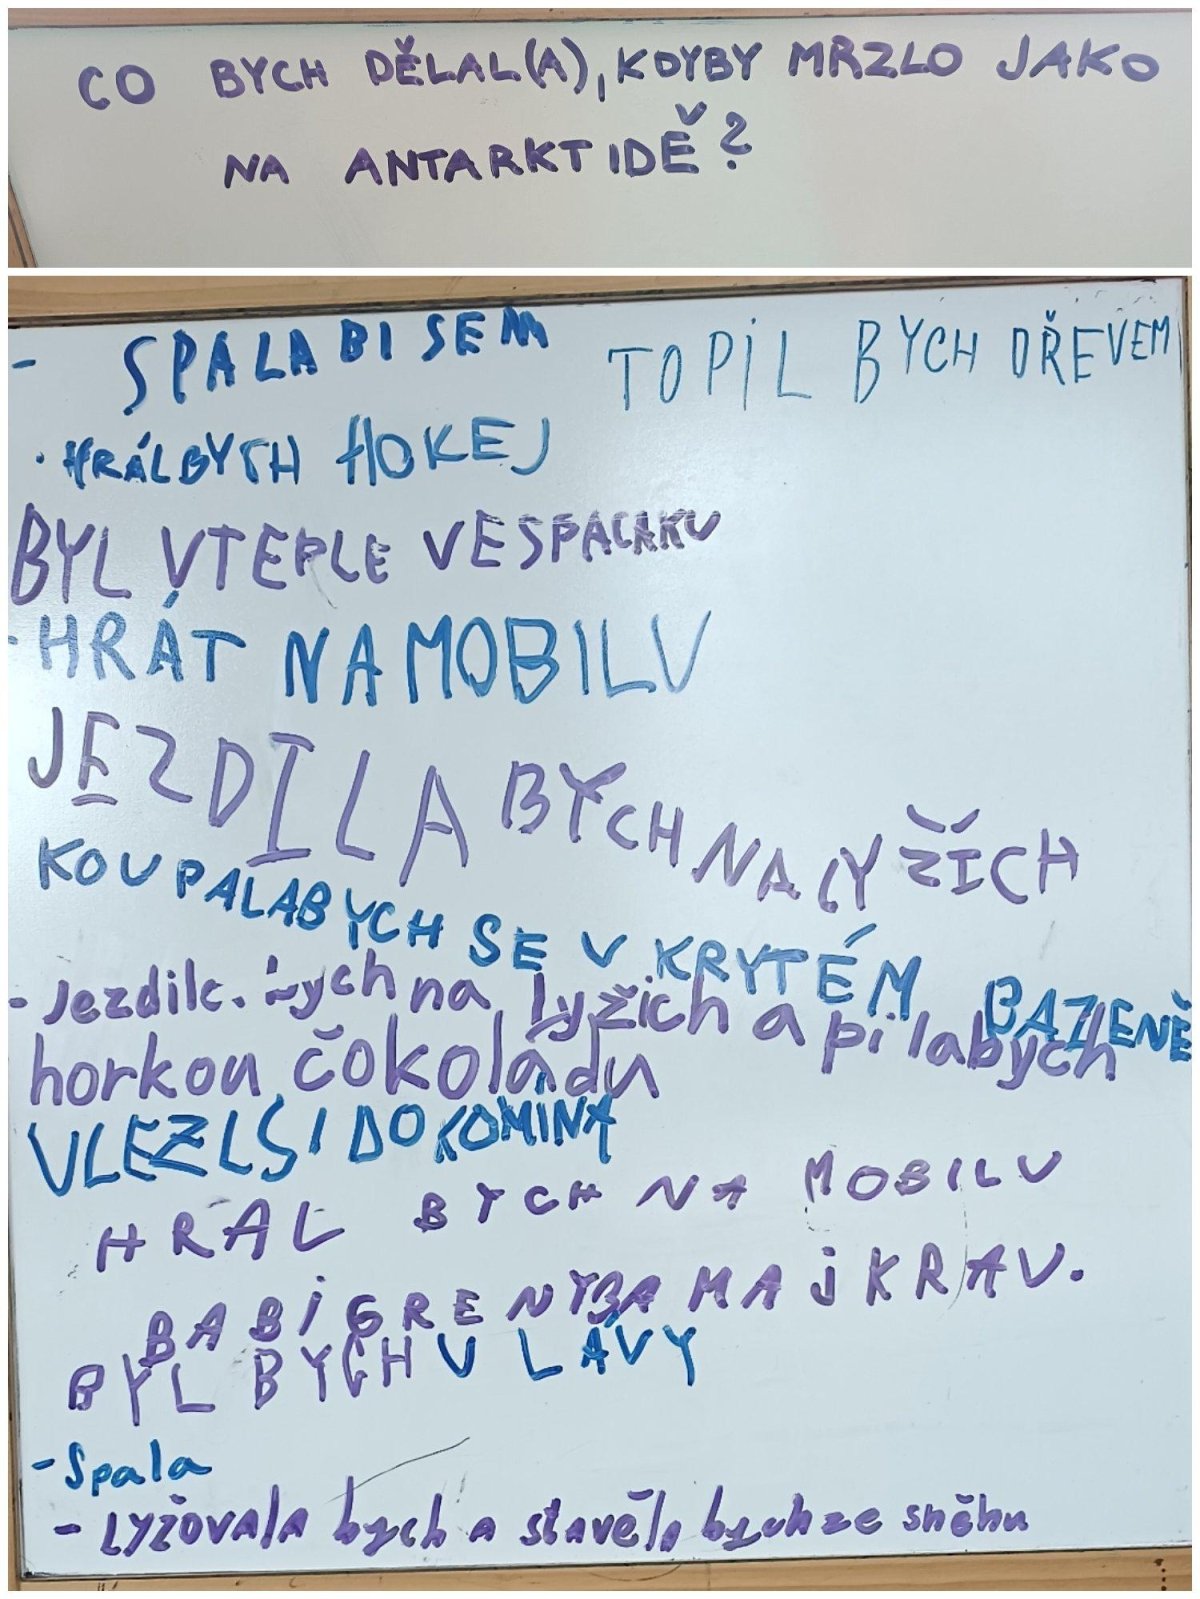 CO BYCH DĚLAL(A), KDYBY MRZLO JAKO
NA ANTARKTIDĚ?
- SPALA BI SEM
TOPIL BYCH DŘEVEM
· HRÁL BYCH HOKEJ
BYL VTEPLE VESPACAKU
- HRÁT NA MOBILU
JEZDILA BYCH NA LYŽÍCH
KOUPALA BYCH SE V KRYTÉM BAZENĚ
- Jezdila bych na lyžich a pila bych
horkou čokoládu
VLEZL SI DO KOMÍNA
HRAL BYCH NA MOBILU
MAJKRAV.
BYL BYCH U LÁVY
- Spala
- Lyžovala bych a stavěla bych ze sněhu